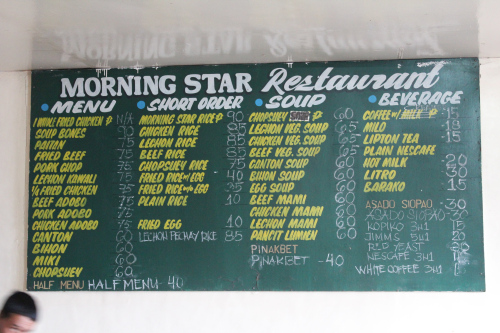 MORNING STAR Restaurant
MENU
1 WHOLE FRIED CHICKEN P N/A
SOUP BONES 90
PAITAN 75
FRIED BEEF 75
PORK CHOP 75
LECHON KAWALI 75
1/4 FRIED CHICKEN 75
BEEF ADOBO 75
PORK ADOBO 75
CHICKEN ADOBO 75
CANTON 60
BIHON 60
MIKI 60
CHOPSUEY 60
HALF MENU HALF MENU - 40
SHORT ORDER
MORNING STAR RICE P 90
CHICKEN RICE 85
LECHON RICE 85
BEEF RICE 85
CHOPSUEY RICE 75
FRIED RICE W/ EGG 40
FRIED RICE W/O EGG 35
PLAIN RICE 10
FRIED EGG 10
LECHON PECHAY RICE 85
SOUP
CHOPSUEY SOUP P 60
LECHON VEG. SOUP 65
CHICKEN VEG. SOUP 65
BEEF VEG. SOUP 65
CANTON SOUP 60
BIHON SOUP 60
EGG SOUP 60
BEEF MAMI 60
CHICKEN MAMI 60
LECHON MAMI 60
PANCIT LUMIEN 60
PINAKBET
PINAKBET - 40
BEVERAGE
COFFEE W/ MILK P 15
MILO 15
LIPTON TEA 15
PLAIN NESCAFE
HOT MILK 20
LITRO 30
BARAKO 15
ASADO SIOPAO 30
ASADO SIOPAO 30
KOPIKO 3in1 15
JIMMS 5in1 20
RED FEAST 20
NESCAFE 3in1
WHITE COFFEE 3in1